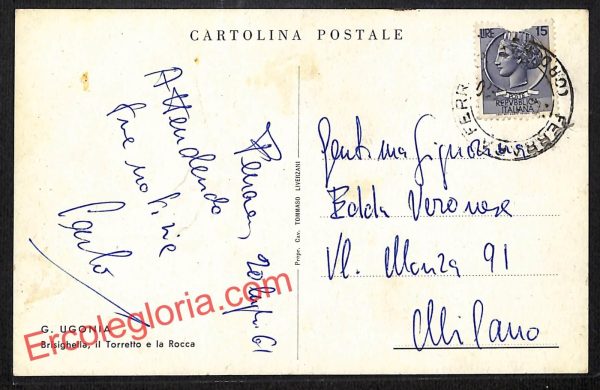 CARTOLINA POSTALE
LIRE 15
POSTE
REPVBBLICA
ITALIANA
FERR
FERR
Attendendo
tue notizie
Carlo
20 luglio 61
Gent.ma Signorina
Edda Veronese
Vl. Monza 91
Milano
Propr. Cav. TOMMASO LIVERZANI
G. UGONIA
Brisighella, il Torretto e la Rocca
Ercolegloria.com